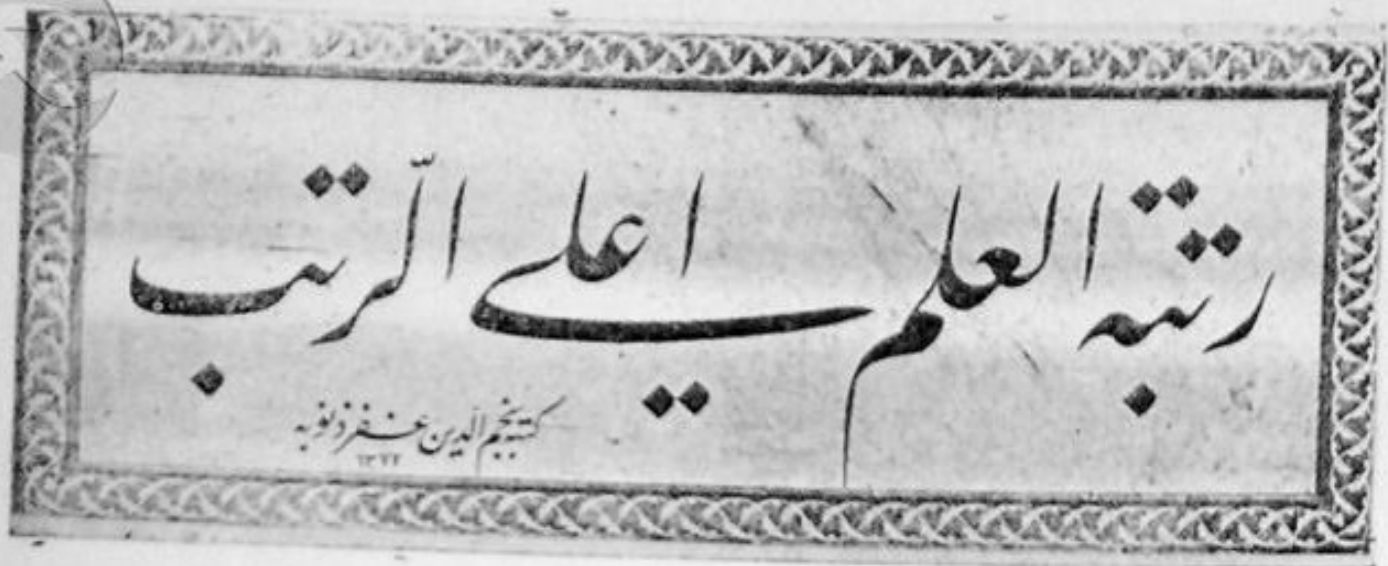 رتبة العلم اعلى الرّتب
كتبه نجم الدين غفر ذنوبه
١٣٢٢